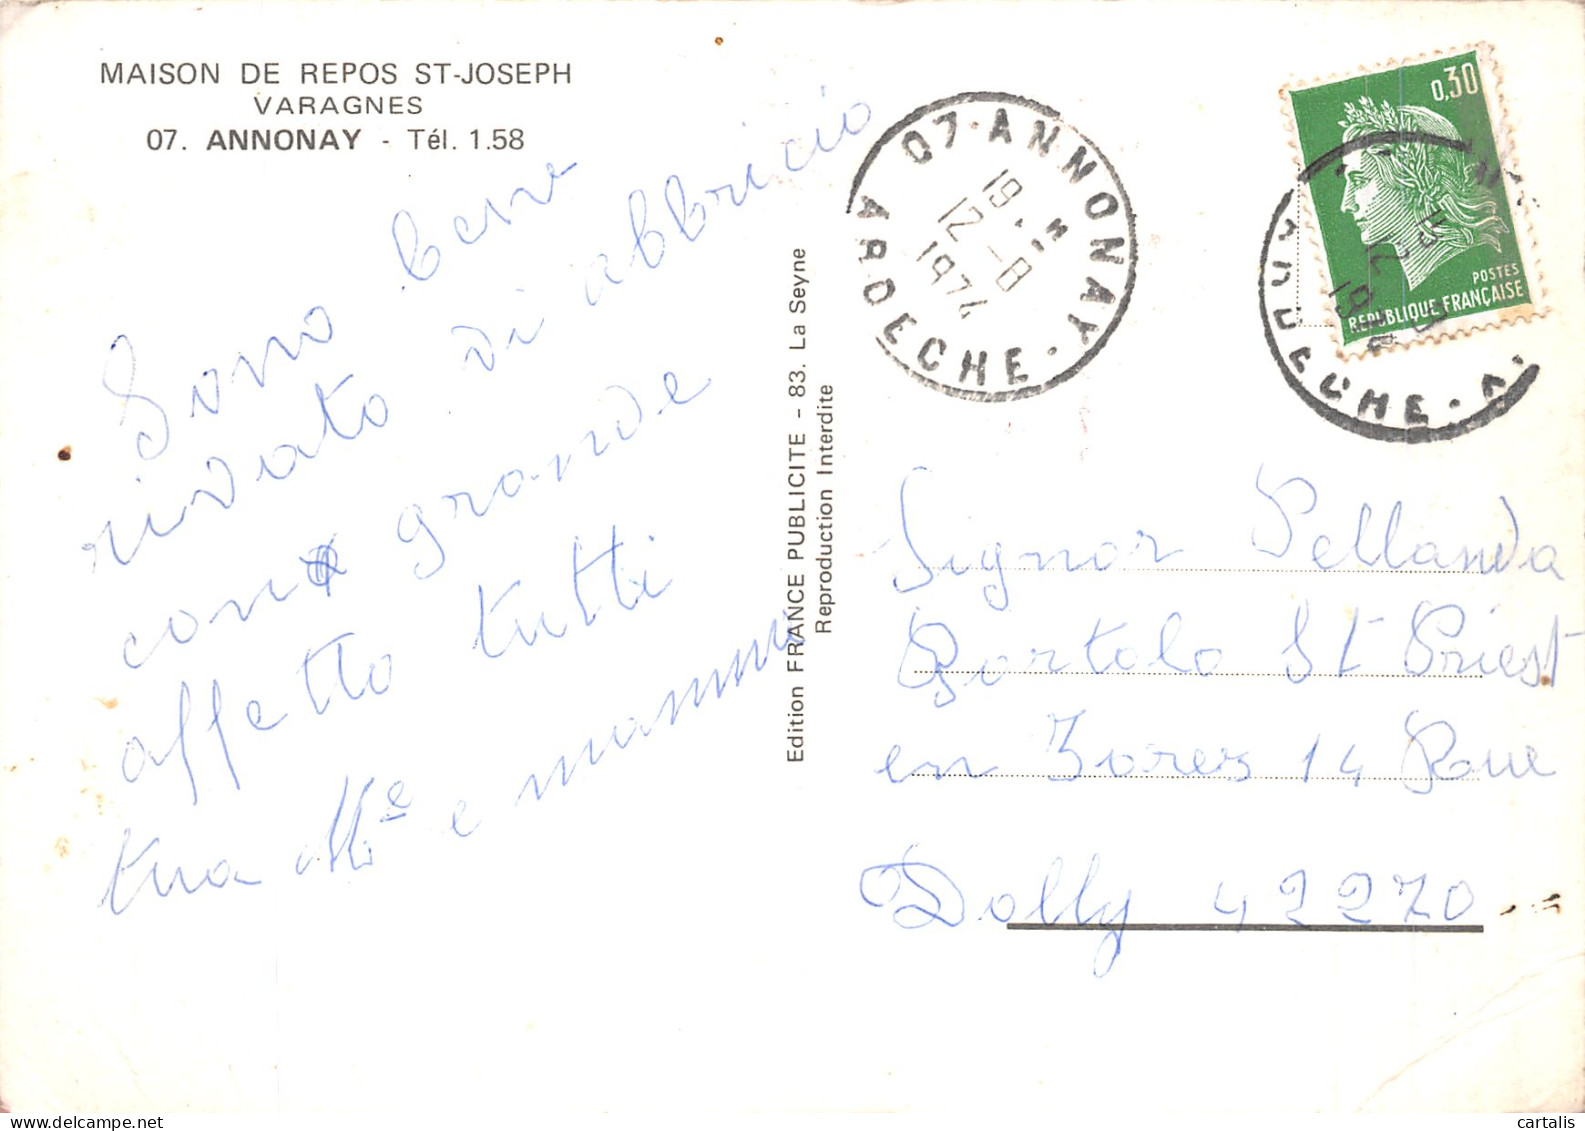 MAISON DE REPOS ST-JOSEPH
VARAGNES
07. ANNONAY - Tél. 1.58
Sono bene
rivato di abbricio
con grande
affetto tutti
tua M e mamma
Edition FRANCE PUBLICITE - 83. La Seyne
Reproduction Interdite
07·ANNONAY·
ARDECHE
19
12-8
1974
0,30
POSTES
REPUBLIQUE FRANÇAISE
Signor Pellanda
Bortolo St Priest
en Jorez 14 Rue
Dolly 42270
cartalis